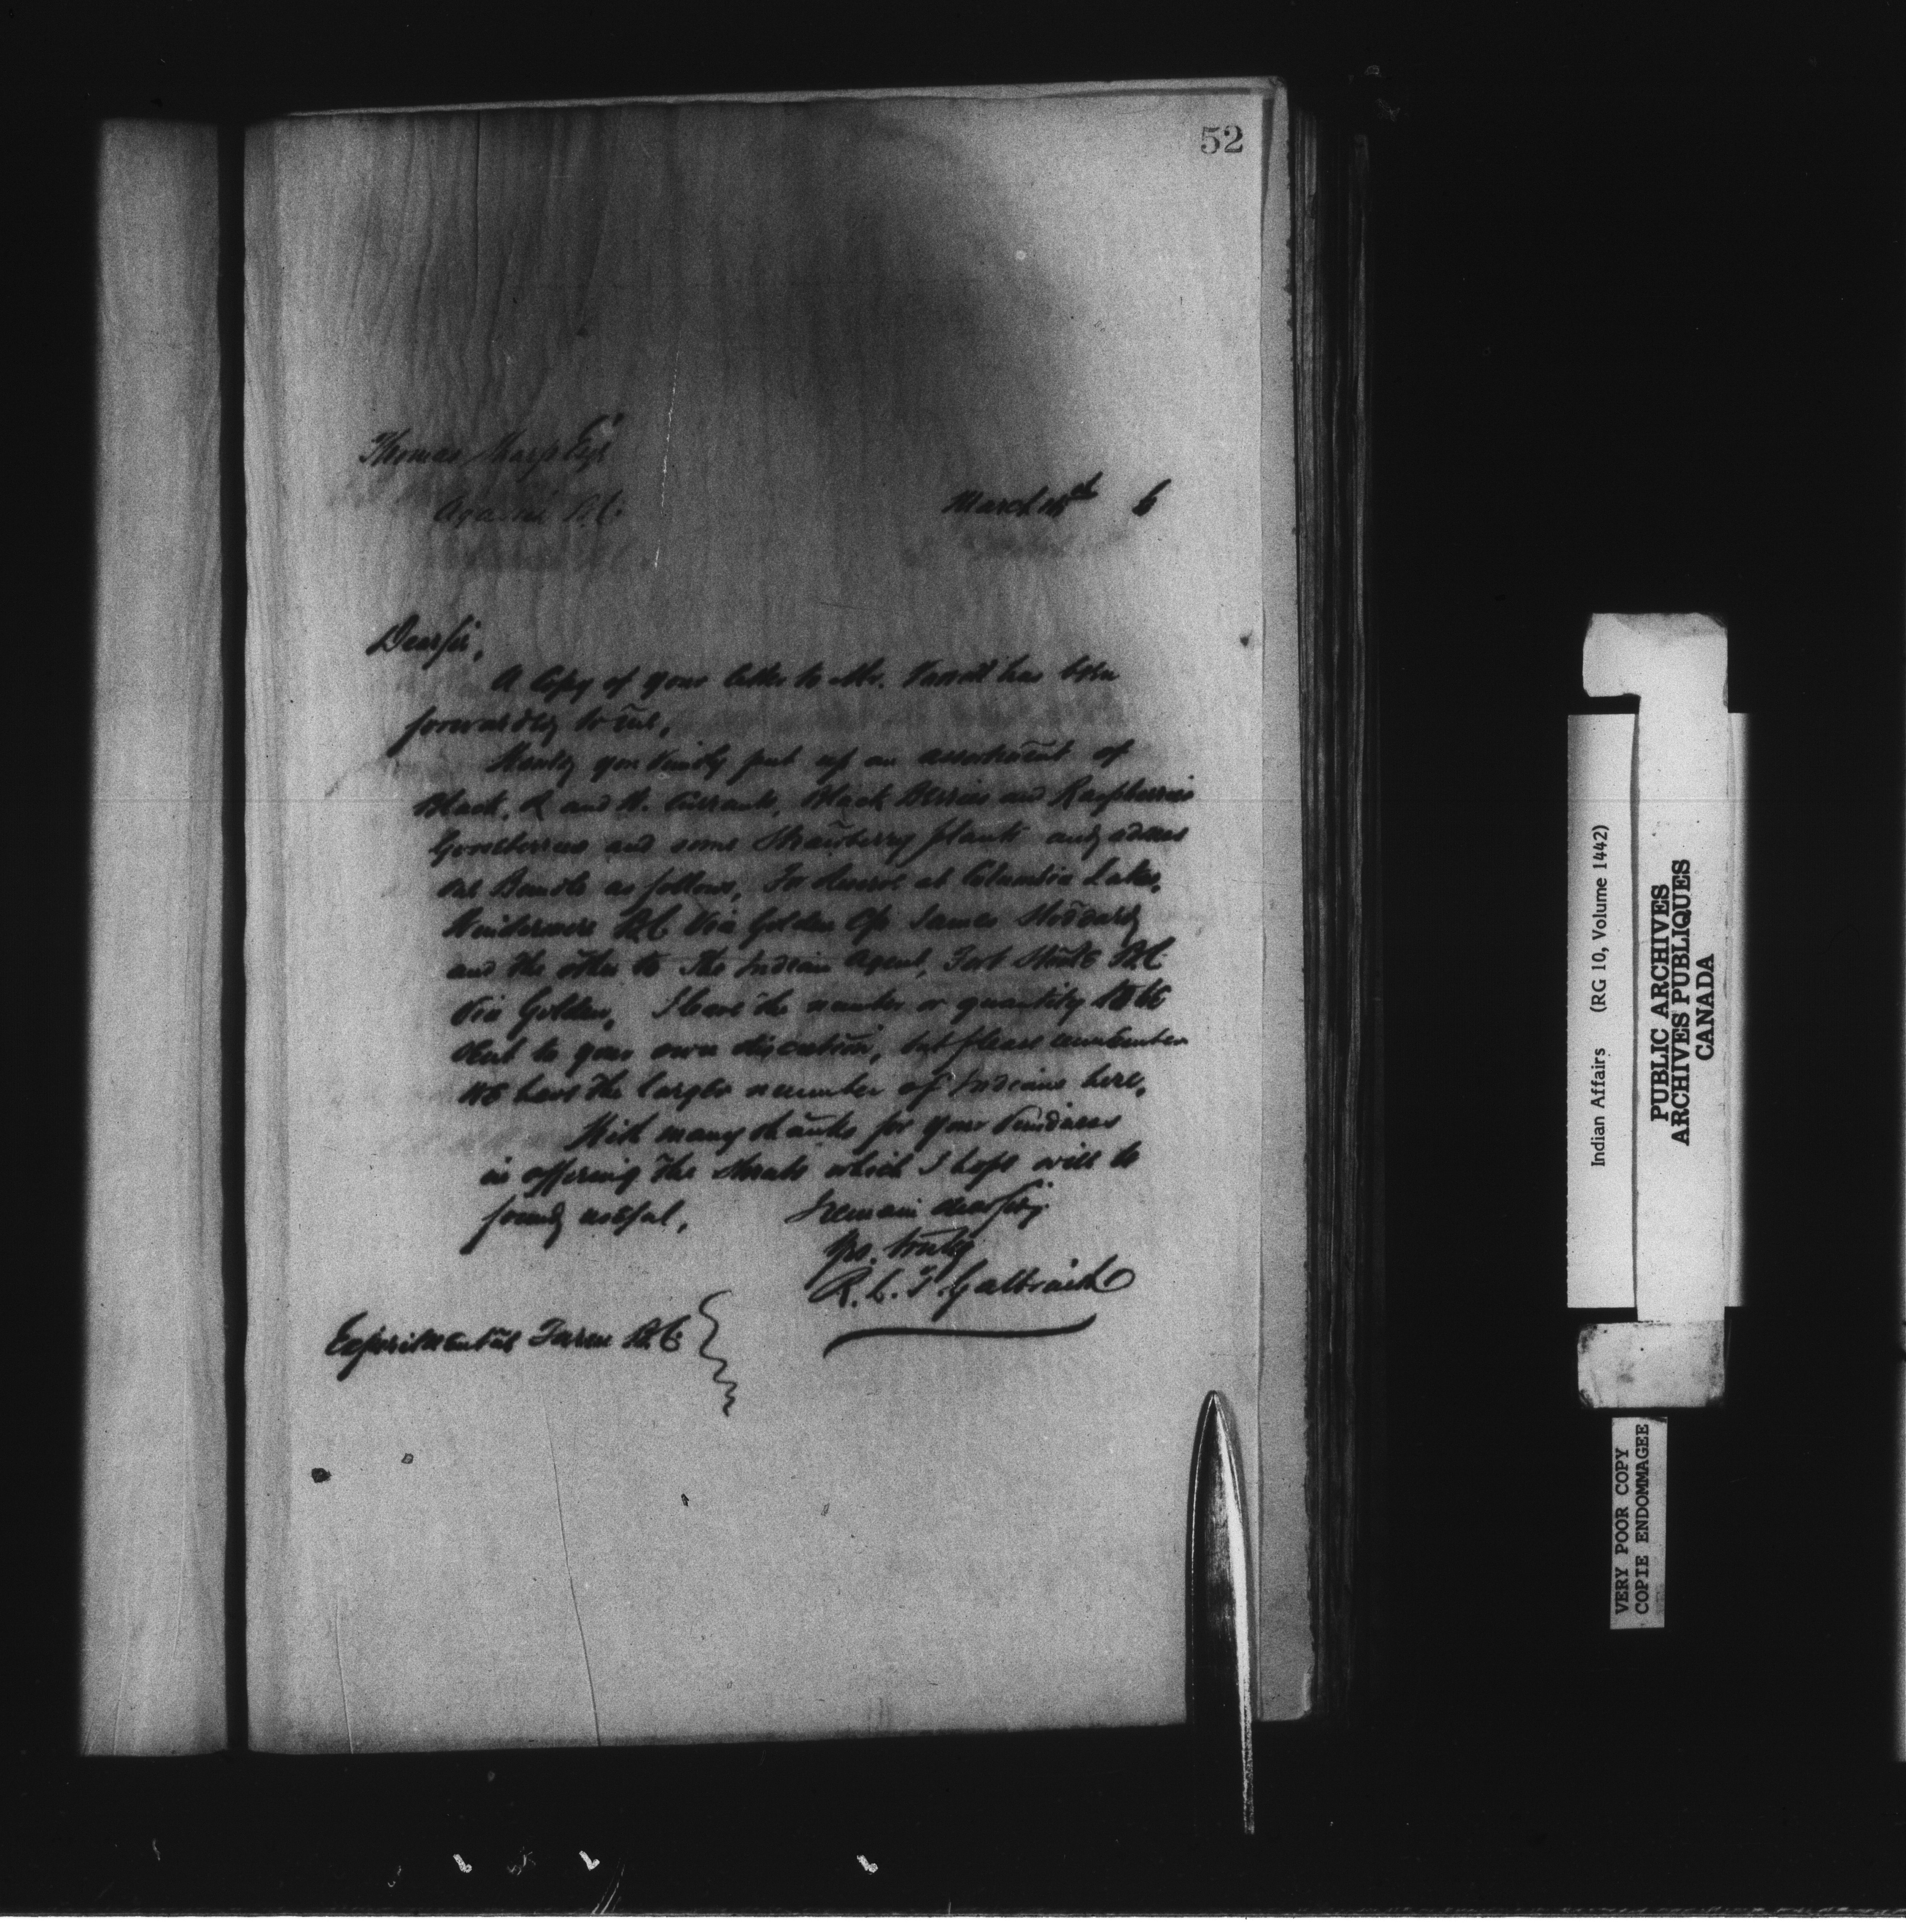 52
Thomas Sharp Esqr
Agassiz B.C.
March 6
Dear Sir,
A Copy of your letter to Mr. has been
forwarded to me,
Would you kindly put up an assortment of
Black, R and W. Currants, Black Berries and Raspberries
Gooseberries and some Strawberry plants and address
one Bundle as follows, For at Columbia Lakes,
Windermere B.C. Via Golden C/o James Stoddard
and the other to The Indian Agent, Fort Steele B.C.
Via Golden, I leave the number or quantity to be
sent to your own discretion, but please remember
we have the larger number of Indians here,
With many thanks for your kindness
in offering the which I hope will be
found useful,
I remain dear Sir,
Yrs. truly
R. L. T Galbraith
Experimental Farm B.C.
Indian Affairs (RG 10, Volume 1442)
PUBLIC ARCHIVES
ARCHIVES PUBLIQUES
CANADA
VERY POOR COPY
COPIE ENDOMMAGEE